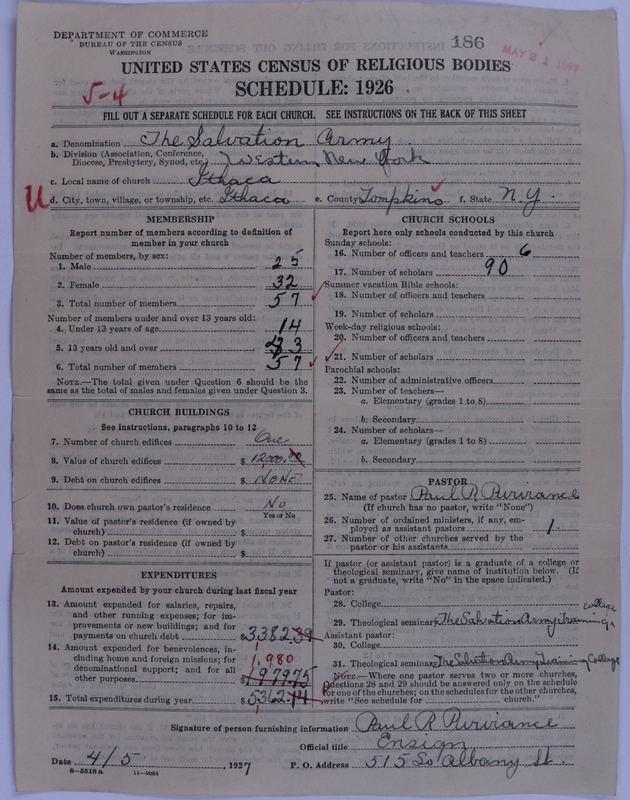 DEPARTMENT OF COMMERCE
BUREAU OF THE CENSUS
WASHINGTON
186
MAY 21 1927
UNITED STATES CENSUS OF RELIGIOUS BODIES
SCHEDULE: 1926
5-4
FILL OUT A SEPARATE SCHEDULE FOR EACH CHURCH. SEE INSTRUCTIONS ON THE BACK OF THIS SHEET
a. Denomination The Salvation Army
b. Division (Association, Conference, Diocese, Presbytery, Synod, etc.) Western New York
c. Local name of church Ithaca
U d. City, town, village, or township, etc. Ithaca e. County Tompkins f. State N.Y.
MEMBERSHIP
Report number of members according to definition of
member in your church
Number of members, by sex:
1. Male 25
2. Female 32
3. Total number of members 57
Number of members under and over 13 years old:
4. Under 13 years of age 14
5. 13 years old and over 43
6. Total number of members 57
NOTE.—The total given under Question 6 should be
same as the total of males and females given under Question 3.
CHURCH BUILDINGS
See instructions, paragraphs 10 to 12
7. Number of church edifices One
8. Value of church edifices $ 12,000.00
9. Debt on church edifices $ NONE
10. Does church own pastor's residence No
Yes or No
11. Value of pastor's residence (if owned by
church) $
12. Debt on pastor's residence (if owned by
church) $
EXPENDITURES
Amount expended by your church during last fiscal year
13. Amount expended for salaries, repairs,
and other running expenses; for im-
provements or new buildings; and for
payments on church debt $ 3382.39
14. Amount expended for benevolences, in-
cluding home and foreign missions; for
denominational support; and for all 1,980
other purposes $ 1979.75
15. Total expenditures during year $ 5362.14
CHURCH SCHOOLS
Report here only schools conducted by this church
Sunday schools:
16. Number of officers and teachers 6
17. Number of scholars 90
Summer vacation Bible schools:
18. Number of officers and teachers
19. Number of scholars
Week-day religious schools:
20. Number of officers and teachers
21. Number of scholars
Parochial schools:
22. Number of administrative officers
23. Number of teachers—
a. Elementary (grades 1 to 8)
b. Secondary
24. Number of scholars—
a. Elementary (grades 1 to 8)
b. Secondary
PASTOR
25. Name of pastor Paul R Purviance
(If church has no pastor, write "None")
26. Number of ordained ministers, if any, em-
ployed as assistant pastors 1
27. Number of other churches served by the
pastor or his assistants
If pastor (or assistant pastor) is a graduate of a college or
theological seminary, give name of institution below. (If
not a graduate, write "No" in the space indicated.)
Pastor:
28. College
29. Theological seminary The Salvation Army Training College
Assistant pastor:
30. College
31. Theological seminary The Salvation Army Training College
NOTE.—Where one pastor serves two or more churches,
Questions 28 and 29 should be answered only on the schedule
for one of the churches; on the schedules for the other churches,
write "See schedule for church."
Signature of person furnishing information Paul R Purviance
Official title Ensign
Date 4/5, 1927 P. O. Address 515 So Albany St.
8-5518a 11-9084